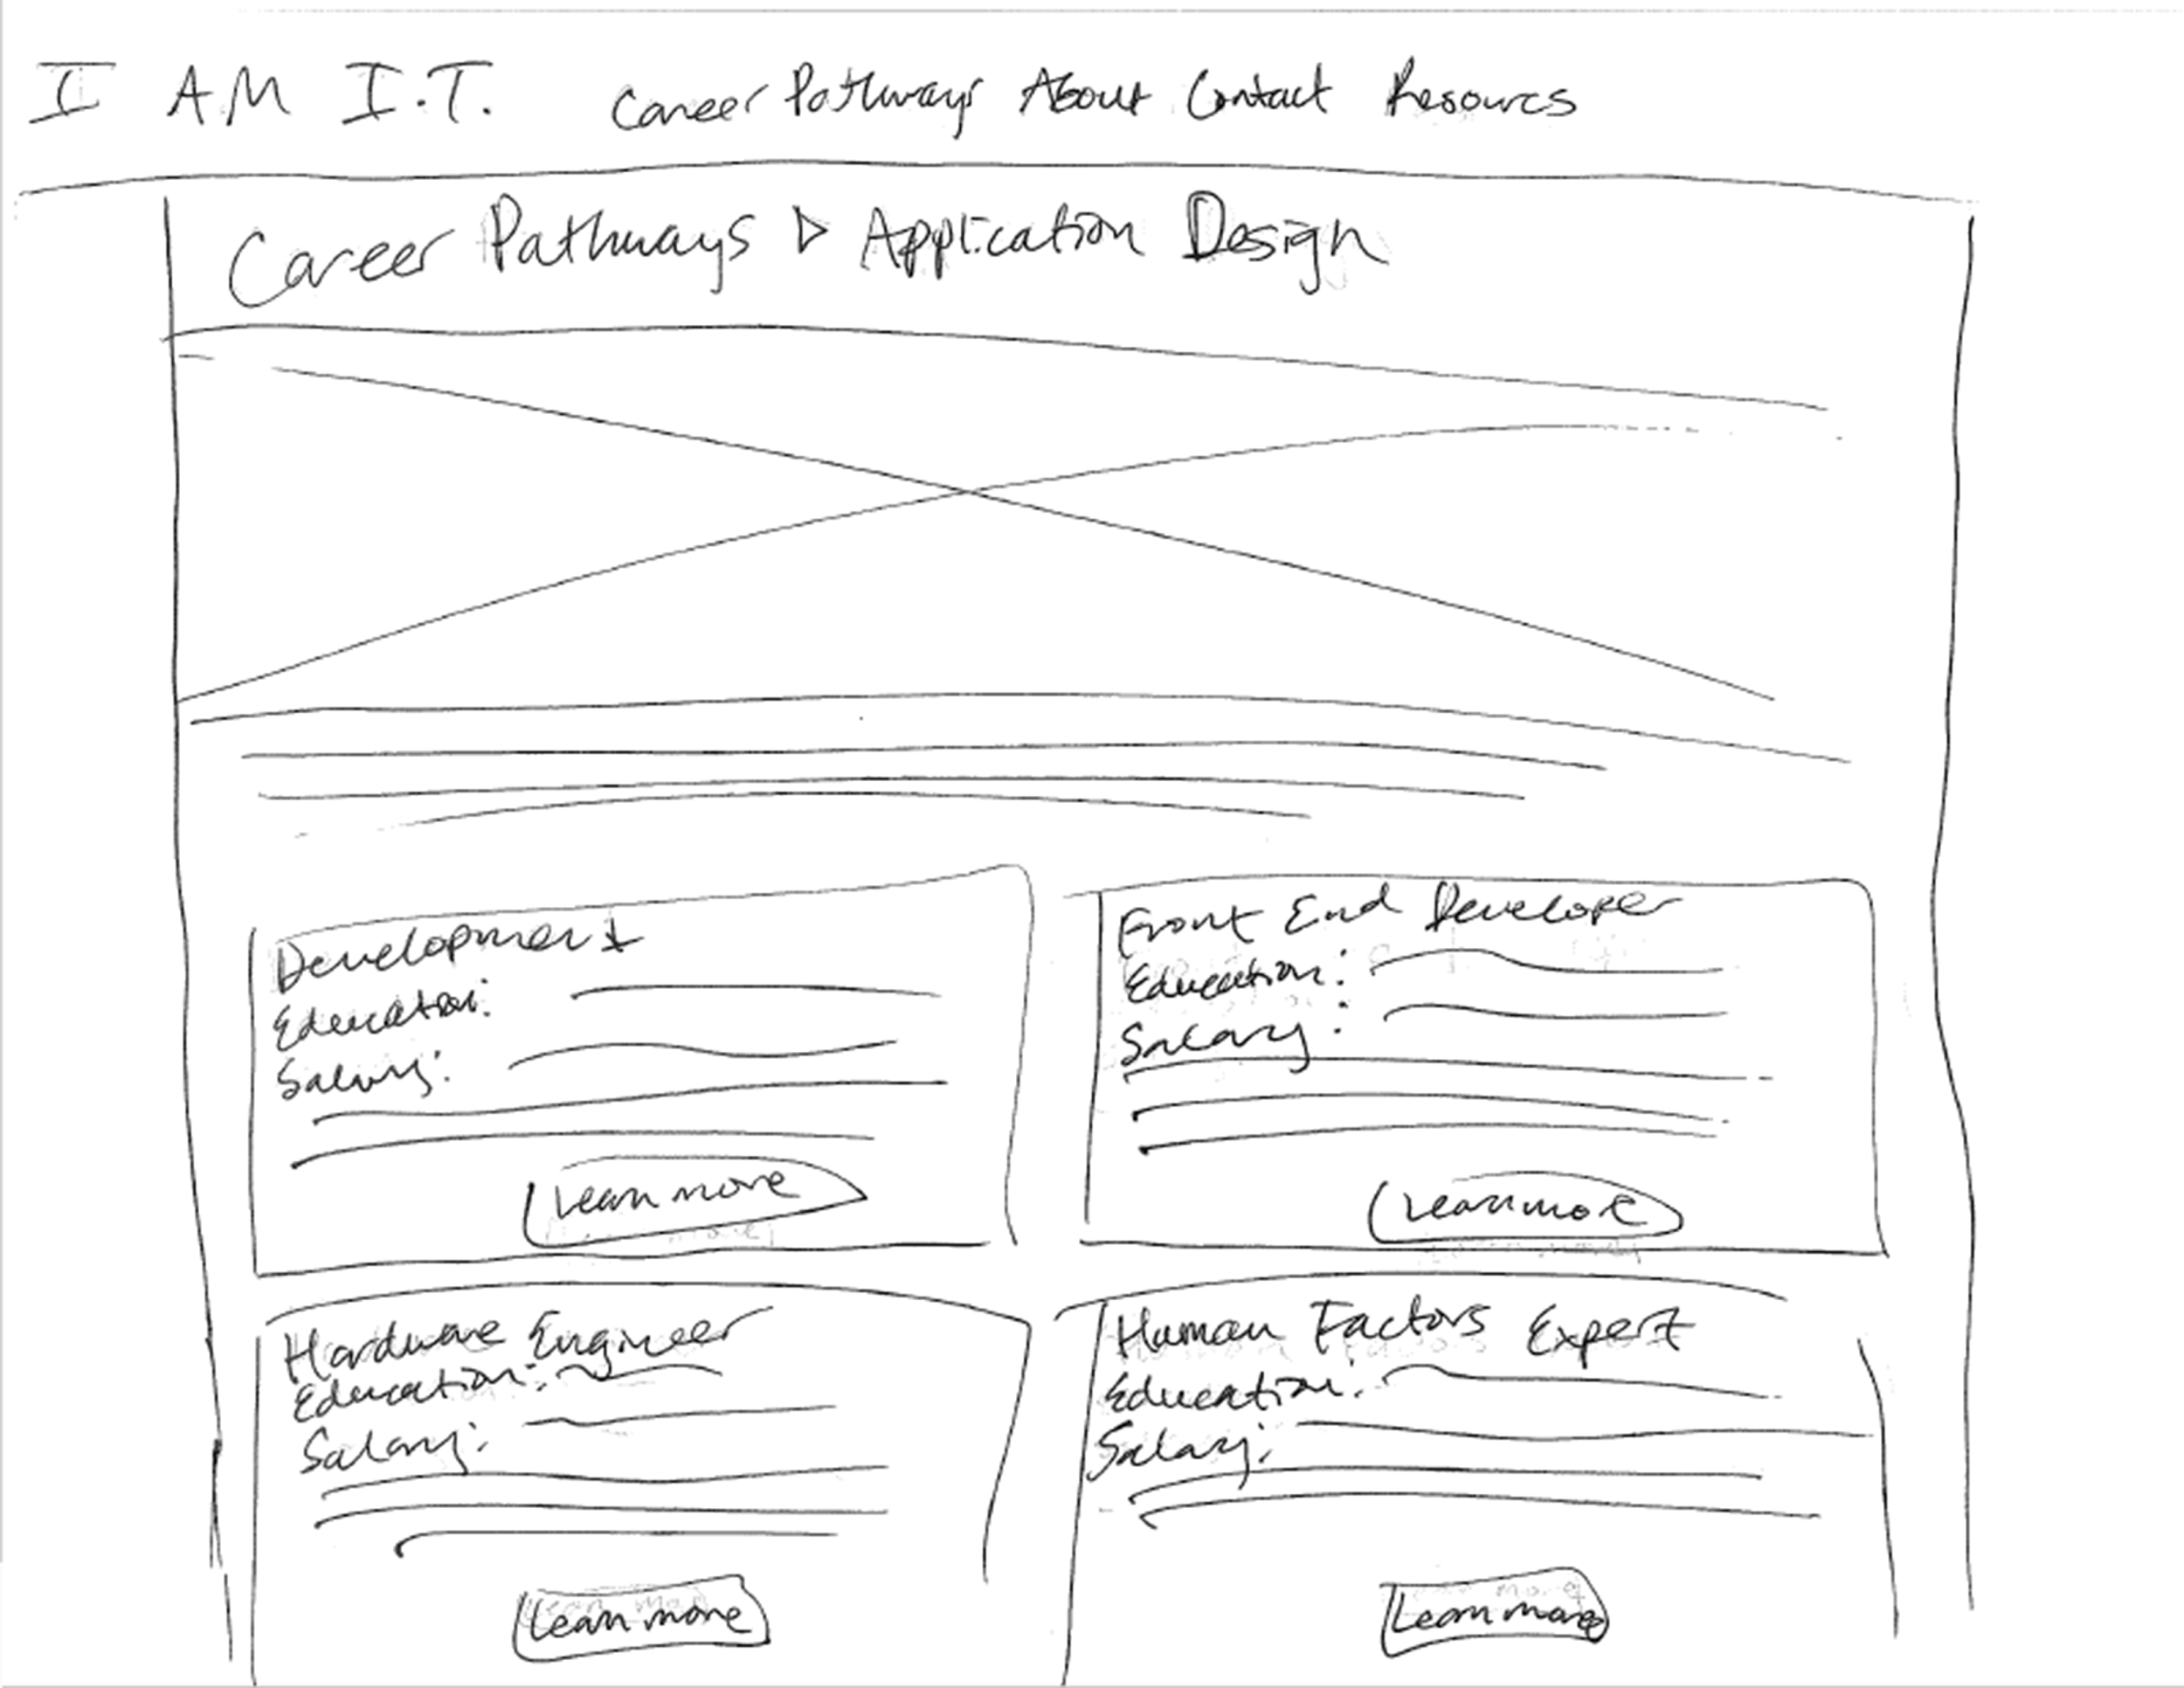 I AM I.T. Career Pathways About Contact Resourcs
Career Pathways ▷ Application Design
Development
Education:
Salary:
Learn more
Front End Developer
Education:
Salary:
Learn more
Hardware Engineer
Education:
Salary:
Learn more
Human Factors Expert
Education:
Salary:
Learn more